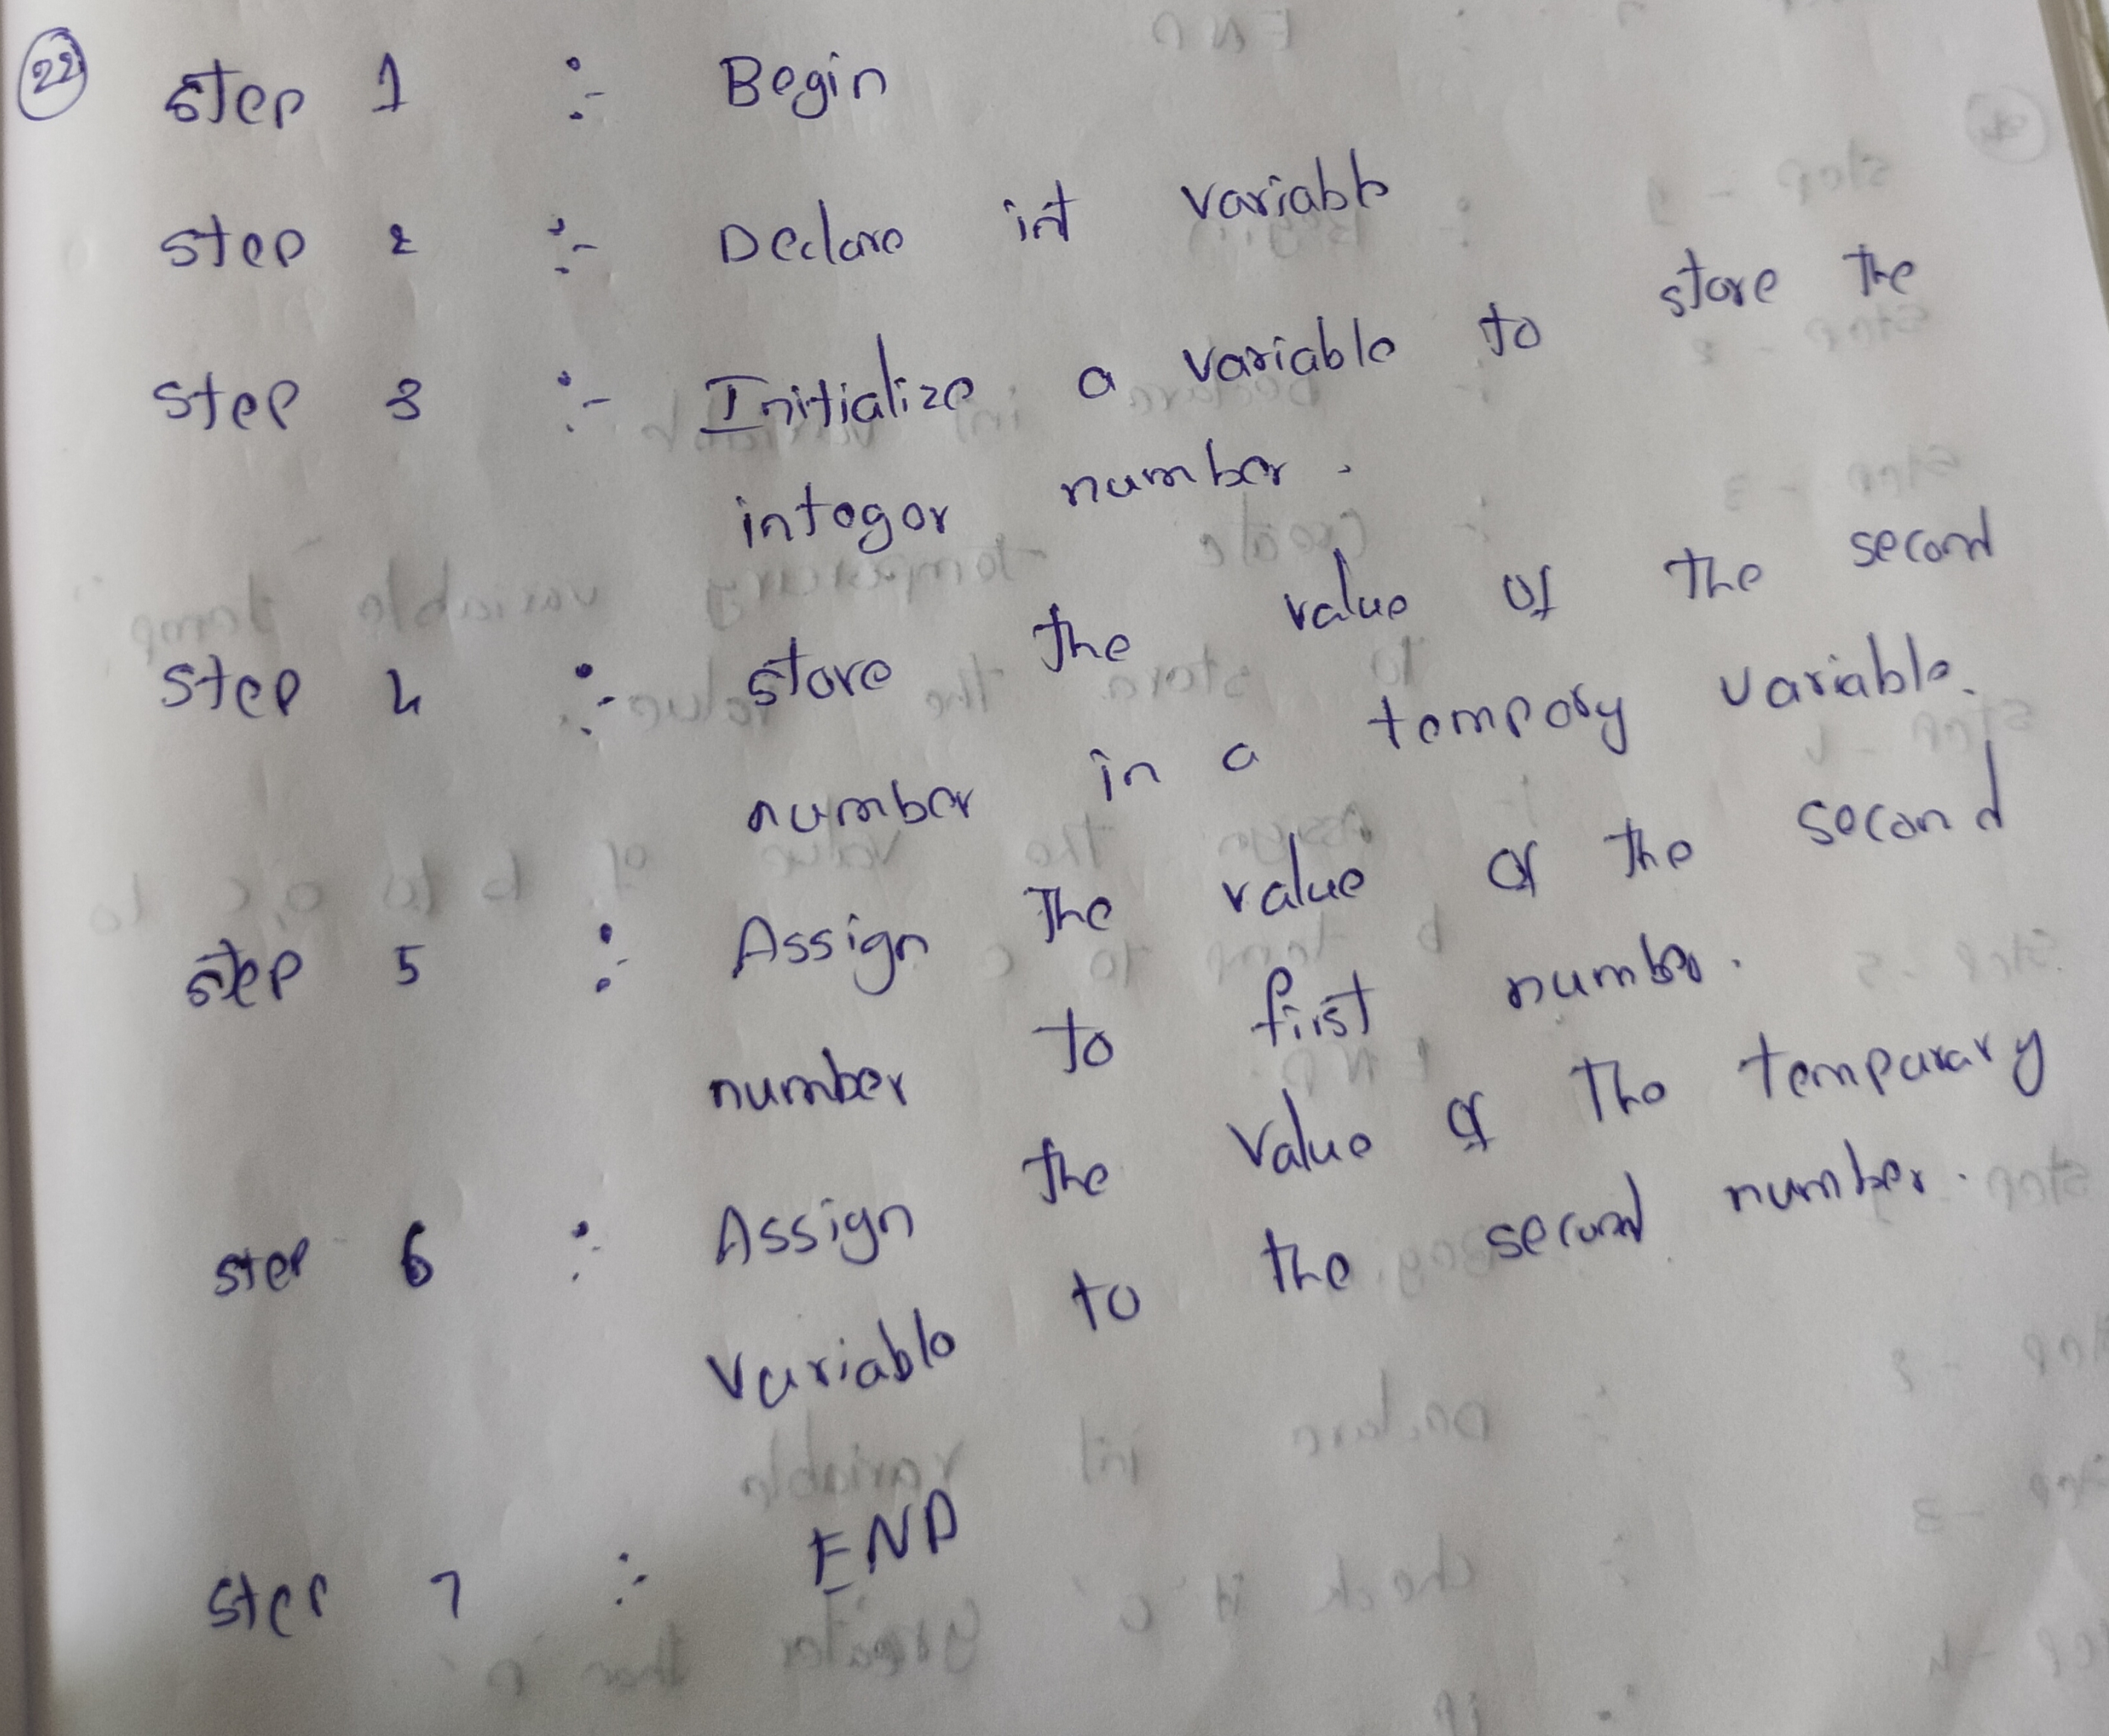 22 Step 1 :- Begin
Step 2 :- Declare int variable
Step 3 :- Initialize a variable to store the
integer number.
Step 4 :- store the value of the second
number in a tempory variable.
Step 5 :- Assign the value of the second
number to first number.
Step 6 :- Assign the value of the temparary
variable to the second number.
Step 7 :- END